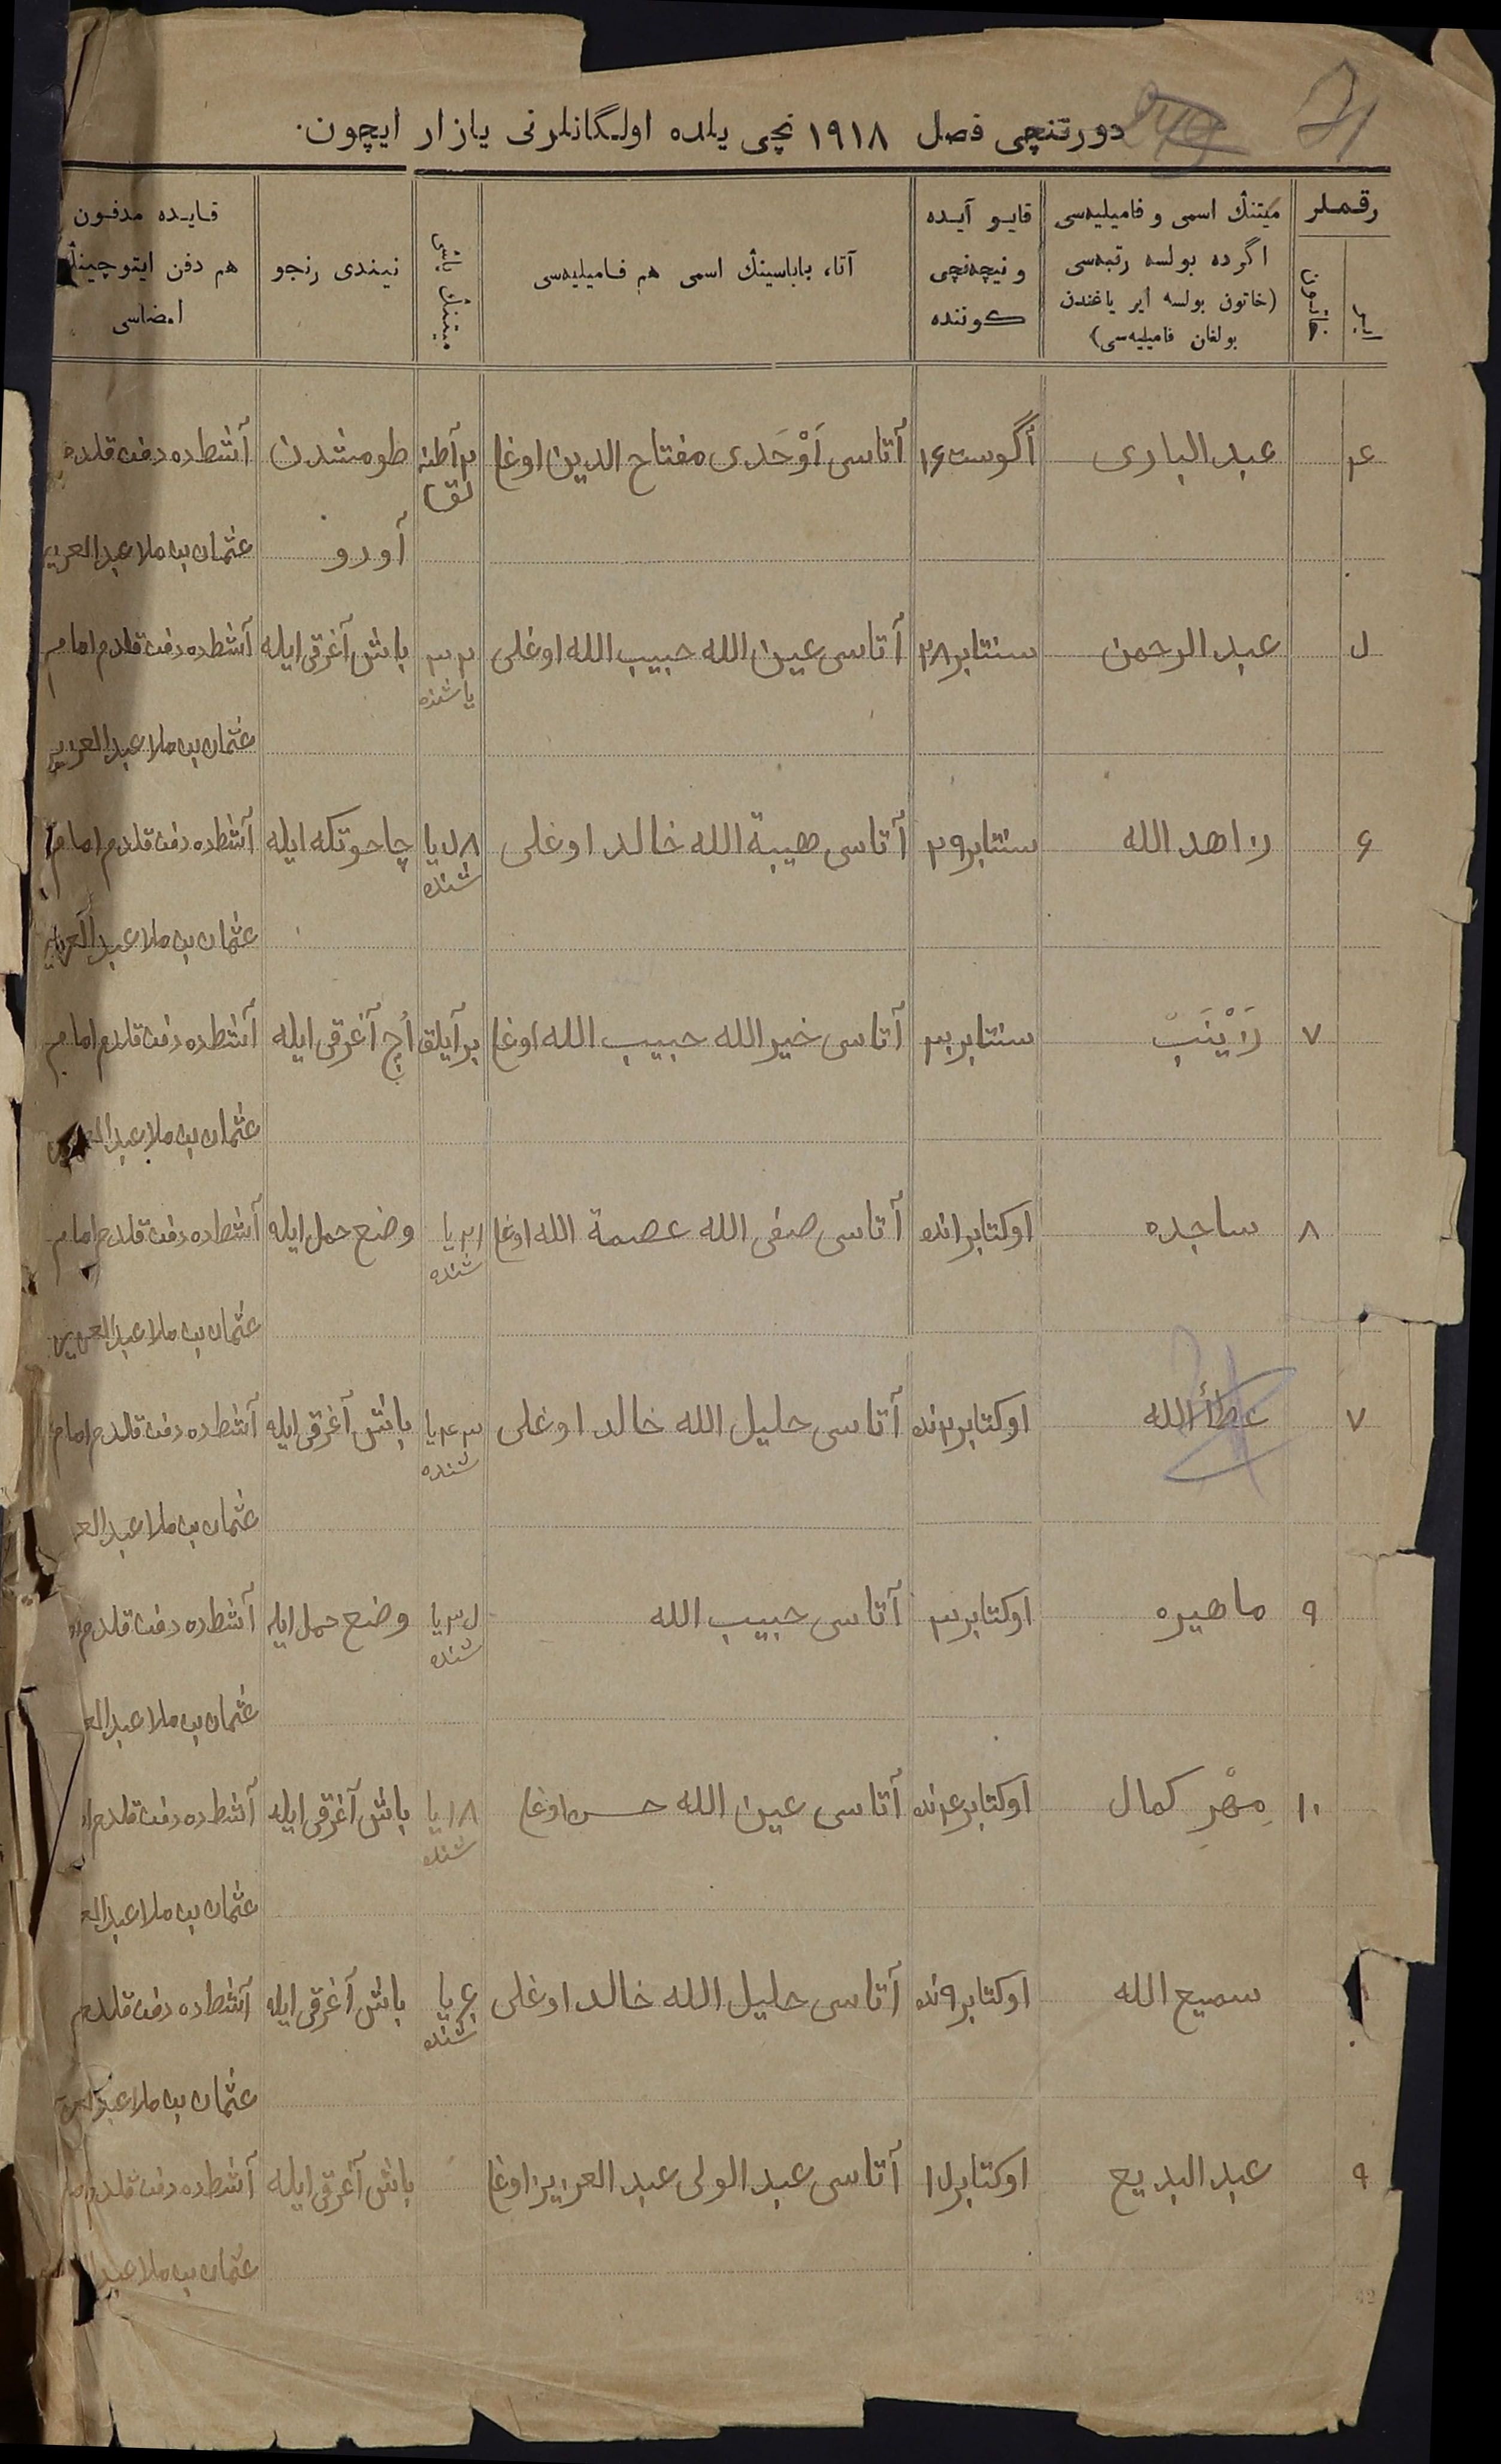 دورتنچی فصل ۱۹۱۸ نچی یلده اولگانلرنی یازار ایچون.
رقملر
ایرلر
خاتون
میتنڭ اسمی و فامیلیه‌سی
اگرده بولسه رتبه‌سی
(خاتون بولسه ایر یاغندن
بولغان فامیلیه‌سی)
قایو آیده
و نیچه‌نچی
کوننده
آتا، باباسینڭ اسمی هم فامیلیه‌سی
میتنڭ یاشی
نیندی رنجو
قایده مدفون
هم دفن ایتوچینڭ
امضاسی
۴ عبد الباری آگوست ۱۶ آتاسی اَوْحَدی مفتاح الدین اوغلی ۲ آطنه‌لق طومشدن آشطده دفن قلدم
آورو عثمان بن ملا عبد العزیز
۵ عبد الرحمن سنتابر ۲۸ آتاسی عین الله حبیب الله اوغلی ۲۳ یاشنده باش آغرقی ایله آشطده دفن قلدم امام
عثمان بن ملا عبد العزیز
۶ زاهد الله سنتابر ۲۹ آتاسی هبة الله خالد اوغلی ۵۸ یاشنده چاحوتکه ایله آشطده دفن قلدم امام
عثمان بن ملا عبد العزیز
۷ زَیْنَبْ سنتابر ۳۰ آتاسی خیر الله حبیب الله اوغلی بر آیلق أچ آغرقی ایله آشطده دفن قلدم امام
عثمان بن ملا عبد
۸ ساجده اوکتابر ۱نده آتاسی صفی الله عصمة الله اوغلی ۲۱ یاشنده وضع حمل ایله آشطده دفن قلدم امام
عثمان بن ملا عبد العزیز
۷ عطأ الله اوکتابر ۲نده آتاسی خلیل الله خالد اوغلی ۳۴ یاشنده باش آغرقی ایله آشطده دفن قلدم امام
عثمان بن ملا عبد الع
۹ ماهیره اوکتابر ۳ آتاسی حبیب الله ۳۵ یاشنده وضع حمل ایله آشطده دفن قلدم
عثمان بن ملا عبد الع
۱۰ مِهْرِ کمال اوکتابر ۴نده آتاسی عین الله حسن اوغلی ۱۸ یاشنده باش آغرقی ایله آشطده دفن قلدم
عثمان بن ملا عبد الع
سمیع الله اوکتابر ۹نده آتاسی خلیل الله خالد اوغلی ۴ یاشنده باش آغرقی ایله آشطده دفن قلدم
عثمان بن ملا عبد العز
۹ عبد البدیع اوکتابر ۱۵ آتاسی عبد الولی عبد العزیز اوغلی باش آغرقی ایله آشطده دفن قلدم امام
عثمان بن ملا عبد